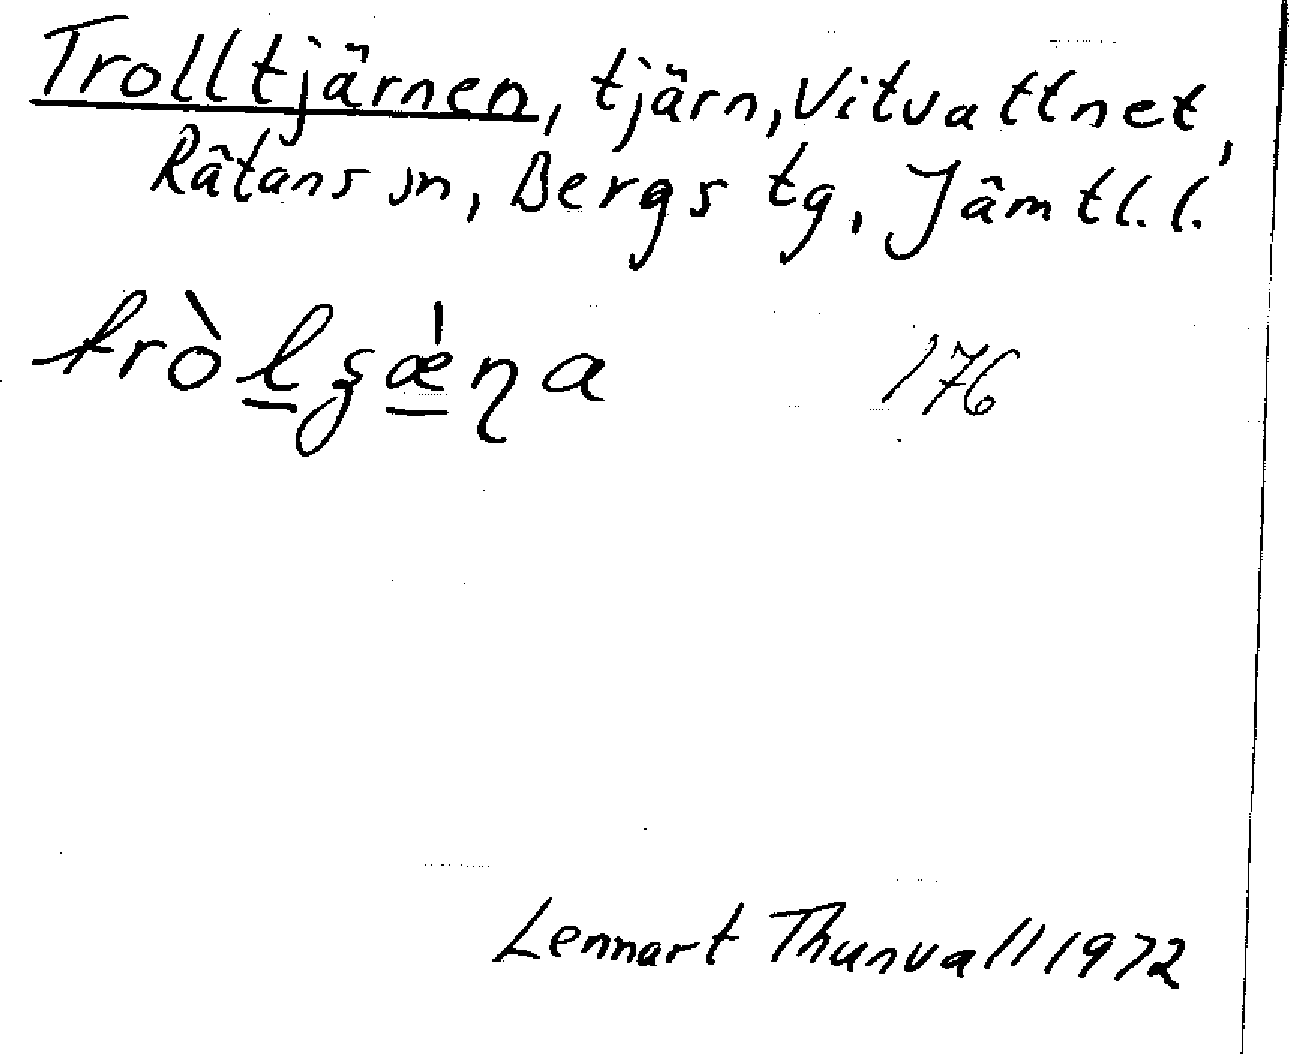 Trolltjärnen, tjärn, Vitvattnet,
Rätans sn, Bergs tg, Jämtl. l.
176
Lennart Thunvall 1972